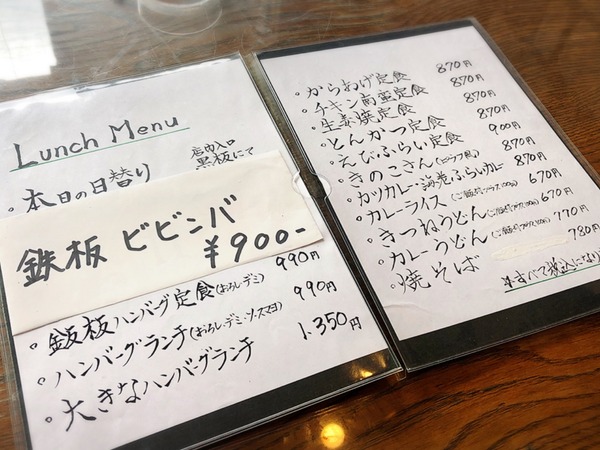 Lunch Menu
。本日の日替り
店内入口
黒板にて
鉄板 ビビンバ
¥900-
。鉄板ハンバーグ定食(おろし・デミ) 990円
。ハンバーグランチ(おろし・デミ・ソースマヨ) 990円
。大きなハンバーグランチ 1,350円
。からあげ定食 870円
。チキン南蛮定食 870円
。生姜焼定食 870円
。とんかつ定食 870円
。えびふらい定食 900円
。きのこさん(ピラフ風) 870円
。カツカレー・海老ふらいカレー 870円
。カレーライス 670円
。きつねうどん 670円
。カレーうどん 770円
。焼そば 780円
※すべて税込になり